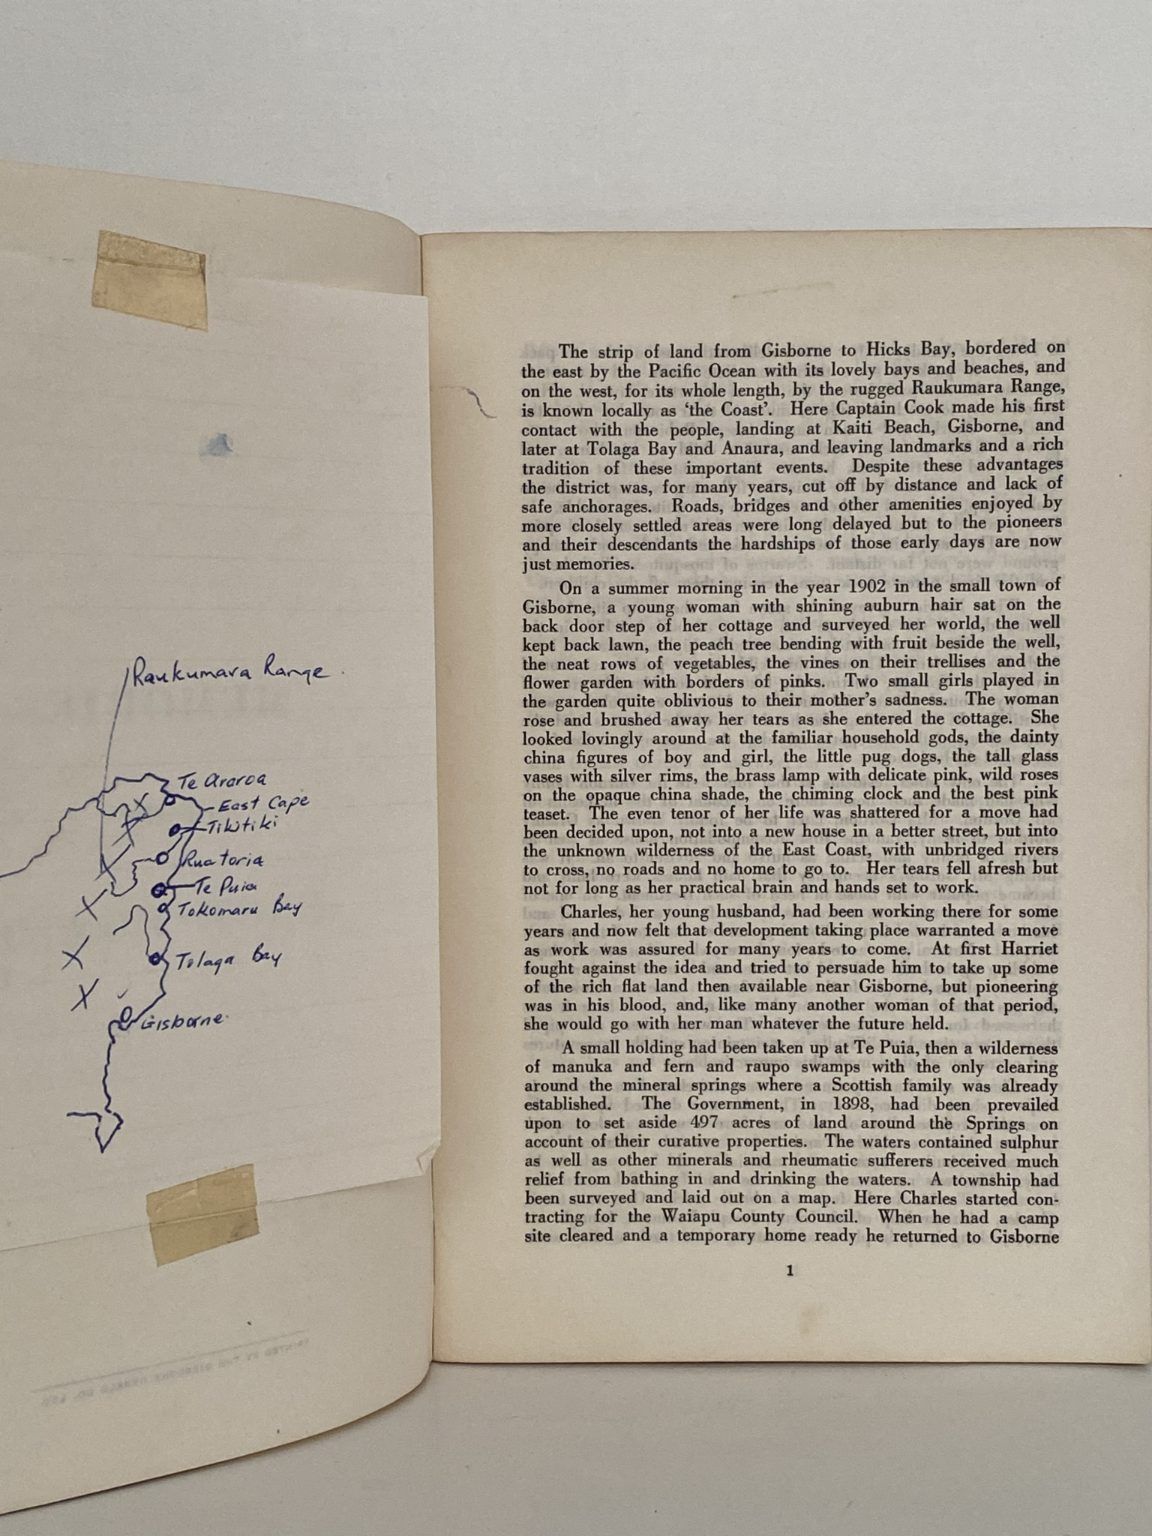 Raukumara Range.
Te Araroa
East Cape
Tikitiki
Ruatoria
Te Puia
Tokomaru Bay
Tolaga Bay
Gisborne
The strip of land from Gisborne to Hicks Bay, bordered on
the east by the Pacific Ocean with its lovely bays and beaches, and
on the west, for its whole length, by the rugged Raukumara Range,
is known locally as ‘the Coast’. Here Captain Cook made his first
contact with the people, landing at Kaiti Beach, Gisborne, and
later at Tolaga Bay and Anaura, and leaving landmarks and a rich
tradition of these important events. Despite these advantages
the district was, for many years, cut off by distance and lack of
safe anchorages. Roads, bridges and other amenities enjoyed by
more closely settled areas were long delayed but to the pioneers
and their descendants the hardships of those early days are now
just memories.
On a summer morning in the year 1902 in the small town of
Gisborne, a young woman with shining auburn hair sat on the
back door step of her cottage and surveyed her world, the well
kept back lawn, the peach tree bending with fruit beside the well,
the neat rows of vegetables, the vines on their trellises and the
flower garden with borders of pinks. Two small girls played in
the garden quite oblivious to their mother’s sadness. The woman
rose and brushed away her tears as she entered the cottage. She
looked lovingly around at the familiar household gods, the dainty
china figures of boy and girl, the little pug dogs, the tall glass
vases with silver rims, the brass lamp with delicate pink, wild roses
on the opaque china shade, the chiming clock and the best pink
teaset. The even tenor of her life was shattered for a move had
been decided upon, not into a new house in a better street, but into
the unknown wilderness of the East Coast, with unbridged rivers
to cross, no roads and no home to go to. Her tears fell afresh but
not for long as her practical brain and hands set to work.
Charles, her young husband, had been working there for some
years and now felt that development taking place warranted a move
as work was assured for many years to come. At first Harriet
fought against the idea and tried to persuade him to take up some
of the rich flat land then available near Gisborne, but pioneering
was in his blood, and, like many another woman of that period,
she would go with her man whatever the future held.
A small holding had been taken up at Te Puia, then a wilderness
of manuka and fern and raupo swamps with the only clearing
around the mineral springs where a Scottish family was already
established. The Government, in 1898, had been prevailed
upon to set aside 497 acres of land around the Springs on
account of their curative properties. The waters contained sulphur
as well as other minerals and rheumatic sufferers received much
relief from bathing in and drinking the waters. A township had
been surveyed and laid out on a map. Here Charles started con-
tracting for the Waiapu County Council. When he had a camp
site cleared and a temporary home ready he returned to Gisborne
1